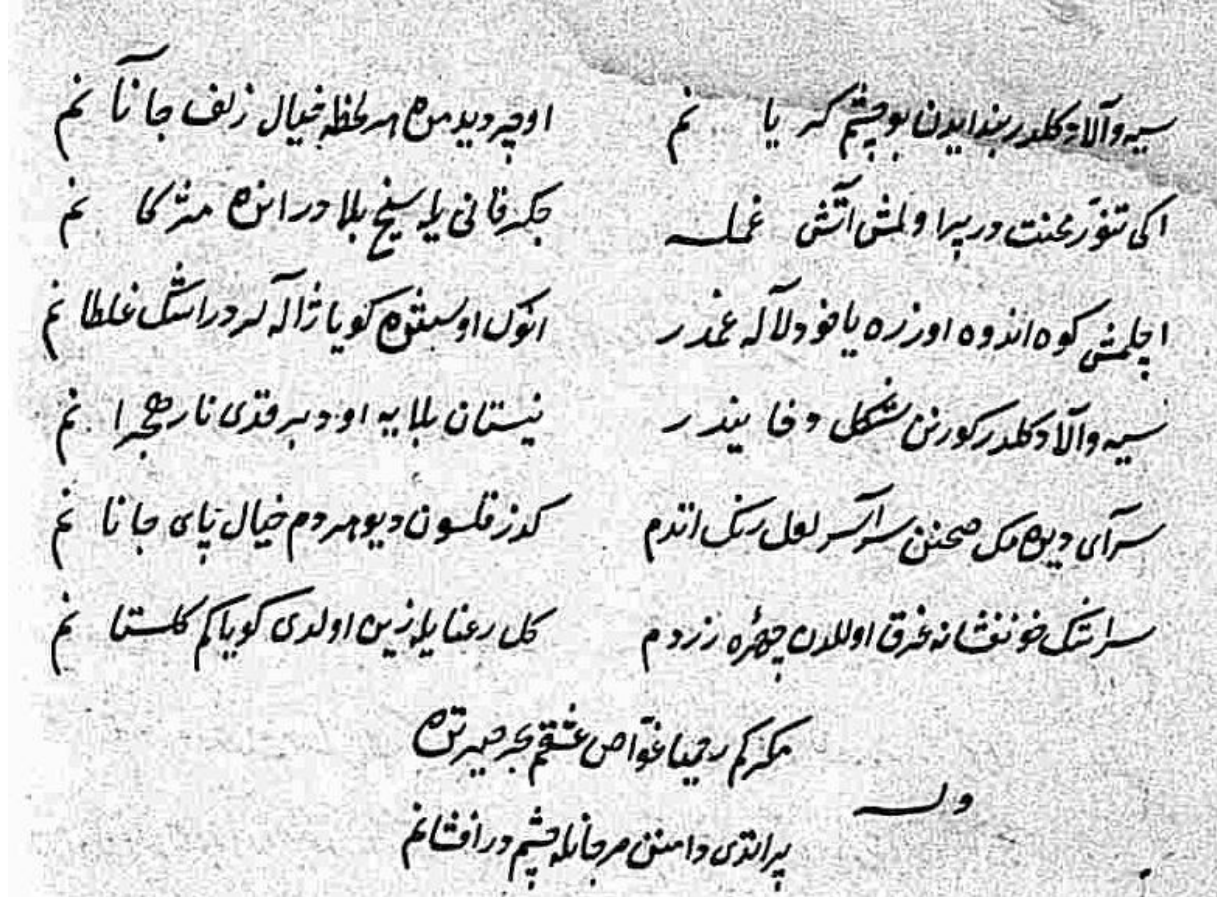 سیه والادکلدر بند ایدن بو چشم کریا نم اوچر دیدمده هر لحظه خیال زلف جانا نم
اکی تنور محنت در پر اولمش آتش غمله جکر قانی یله سیخ بلا در انده مژکا نم
اچلمش کوه اندوه اوزره یا خود لاله غمدر انوک اوستنده کویا ژاله لر در اشک غلطا نم
سیه والادکلدر کورنن شکل دخانیدر نیستان بلایه اود براقدی نار هجرا نم
سرای دیده مک صحنن سراسر لعل رنک اتدم کذر قلسون دیو هر دم خیال پای جانا نم
سرشک خونفشانه غرق اوللدن چهرۀ زردم کل رعنا یله زین اولدی کویا کم کلستا نم
مکر کم رحمیا غواص عشقم بحر حیرتده
پر اتدی دامنن مرجانله چشم درافشانم
وله